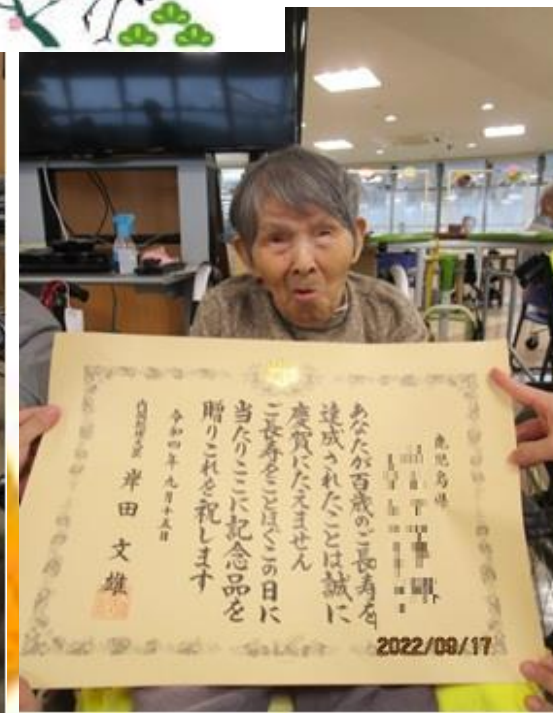 鹿児島県
あなたが百歳のご長寿を
達成されたことは誠に
慶賀にたえません
ご長寿をことほぐこの日に
当たりここに記念品を
贈りこれを祝します
令和四年九月十五日
内閣総理大臣 岸田文雄
2022/09/17